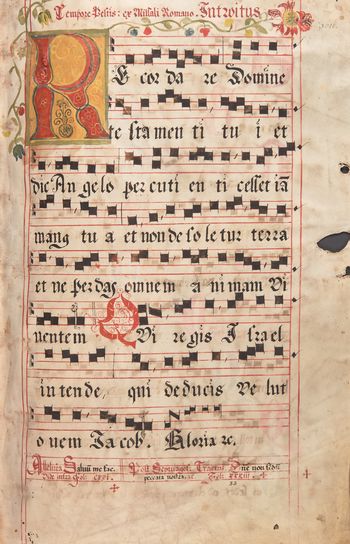 Tempore Pestis: ex Missali Romano. Introitus
RE cor da re Domine
te sta men ti tu i et
dic An ge lo per cu ti en ti cesset iā
manꝰ tu a et non de so le tur terra
et ne perdas omnem a ni mam vi
ventem QVi re gis I srael
in ten de, qui deducis ve lut
o vem Ja cob. Gloria &c.
Alleluia Salvū me fac. Post Septuages. Tractus Dñe non secū
peccata nostra